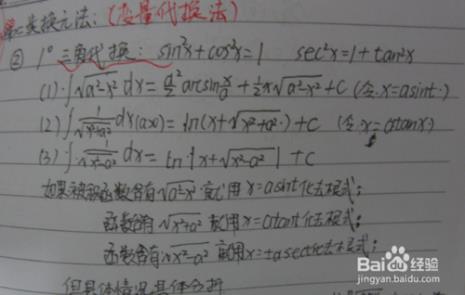 第二类换元法:(变量代换法)
② 1° 三角代换: sin²x+cos²x=1 sec²x=1+tan²x
(1)·∫√(a²-x²) dx = a²/2 arcsin x/a + ½x√(a²-x²) + C (令.x=asint·)
(2)∫ 1/√(x²+a²) dx(a>0) = ln(x+√(x²+a²)·) + C (令.x=atanx)
(3)∫ 1/√(x²-a²) dx = ln|x+√(x²-a²)| + C
如果被积函数含有√(a²-x²) 就用 x=asint化去根式;
函数含有√(x²+a²) 就用x=atant化去根式;
函数含有√(x²-a²) 就用x=±asect化去根式;
但具体情况具体分析
Baidu经验
jingyan.baidu.com